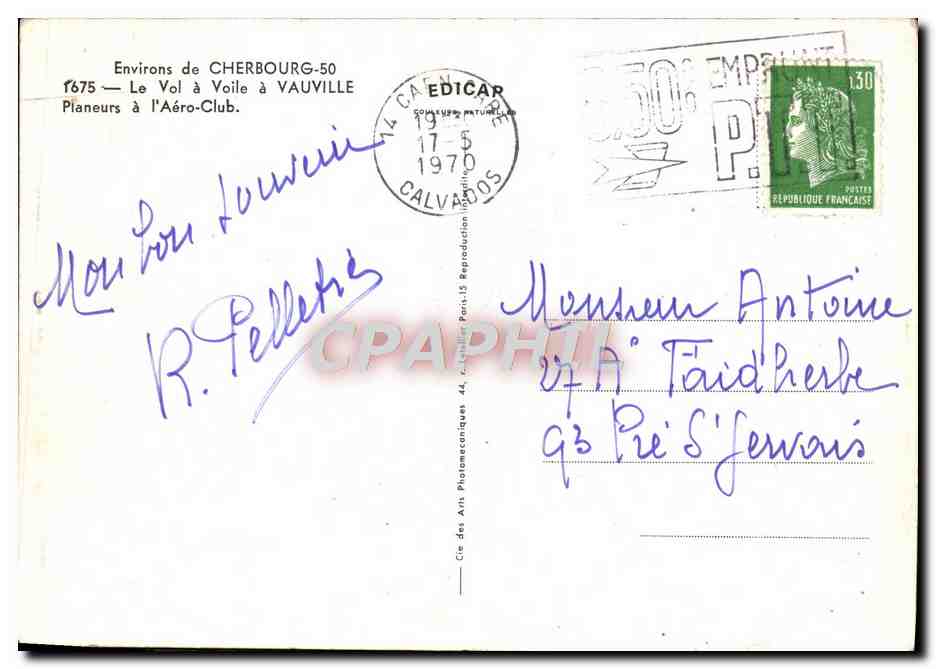 Environs de CHERBOURG-50
1675 — Le Vol à Voile à VAUVILLE
Planeurs à l'Aéro-Club.
EDICAP
COULEURS NATURELLES
14 CAEN GARE
17-5
1970
CALVADOS
EMPRUNT
P.T.T.
0.30
POSTES
REPUBLIQUE FRANÇAISE
Mon bon souvenir
R. Pelletier
CPAPHIL
Cie des Arts Photomecaniques 44, r. Letellier Paris-15 Reproduction interdite
Monsieur Antoine
27 A° Faidherbe
93 Pré St Gervais